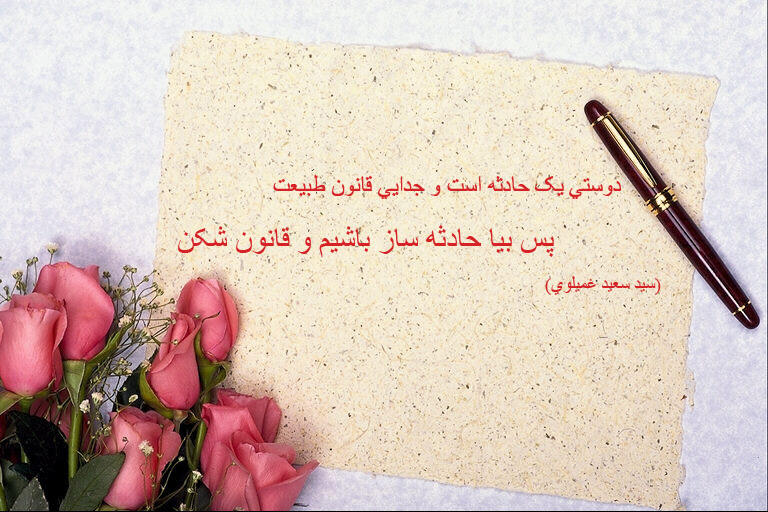 دوستي يک حادثه است و جدايي قانون طبيعت
پس بيا حادثه ساز باشيم و قانون شکن
(سيد سعيد غميلوي)